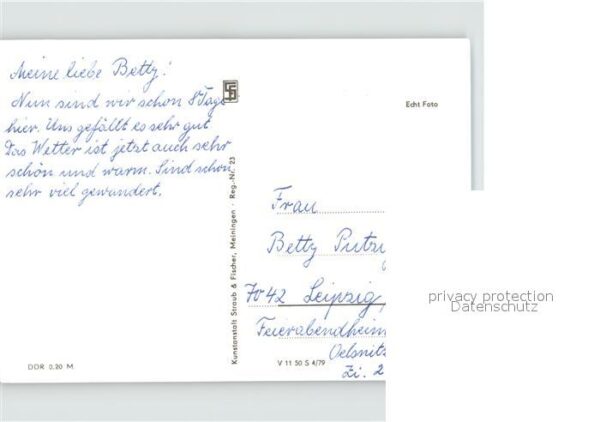 Meine liebe Betty!
Nun sind wir schon 8 Tage
hier. Uns gefällt es sehr gut
Das Wetter ist jetzt auch sehr
schön und warm. Sind schon
sehr viel gewandert.
DDR 0,20 M
Kunstanstalt Straub & Fischer, Meiningen - Reg.-Nr. 23
Echt Foto
Frau
Betty
7042 Leipzig,
Feierabendheim
Oelsnitz
Zi. 2
V 11 50 S 4/79
privacy protection
Datenschutz